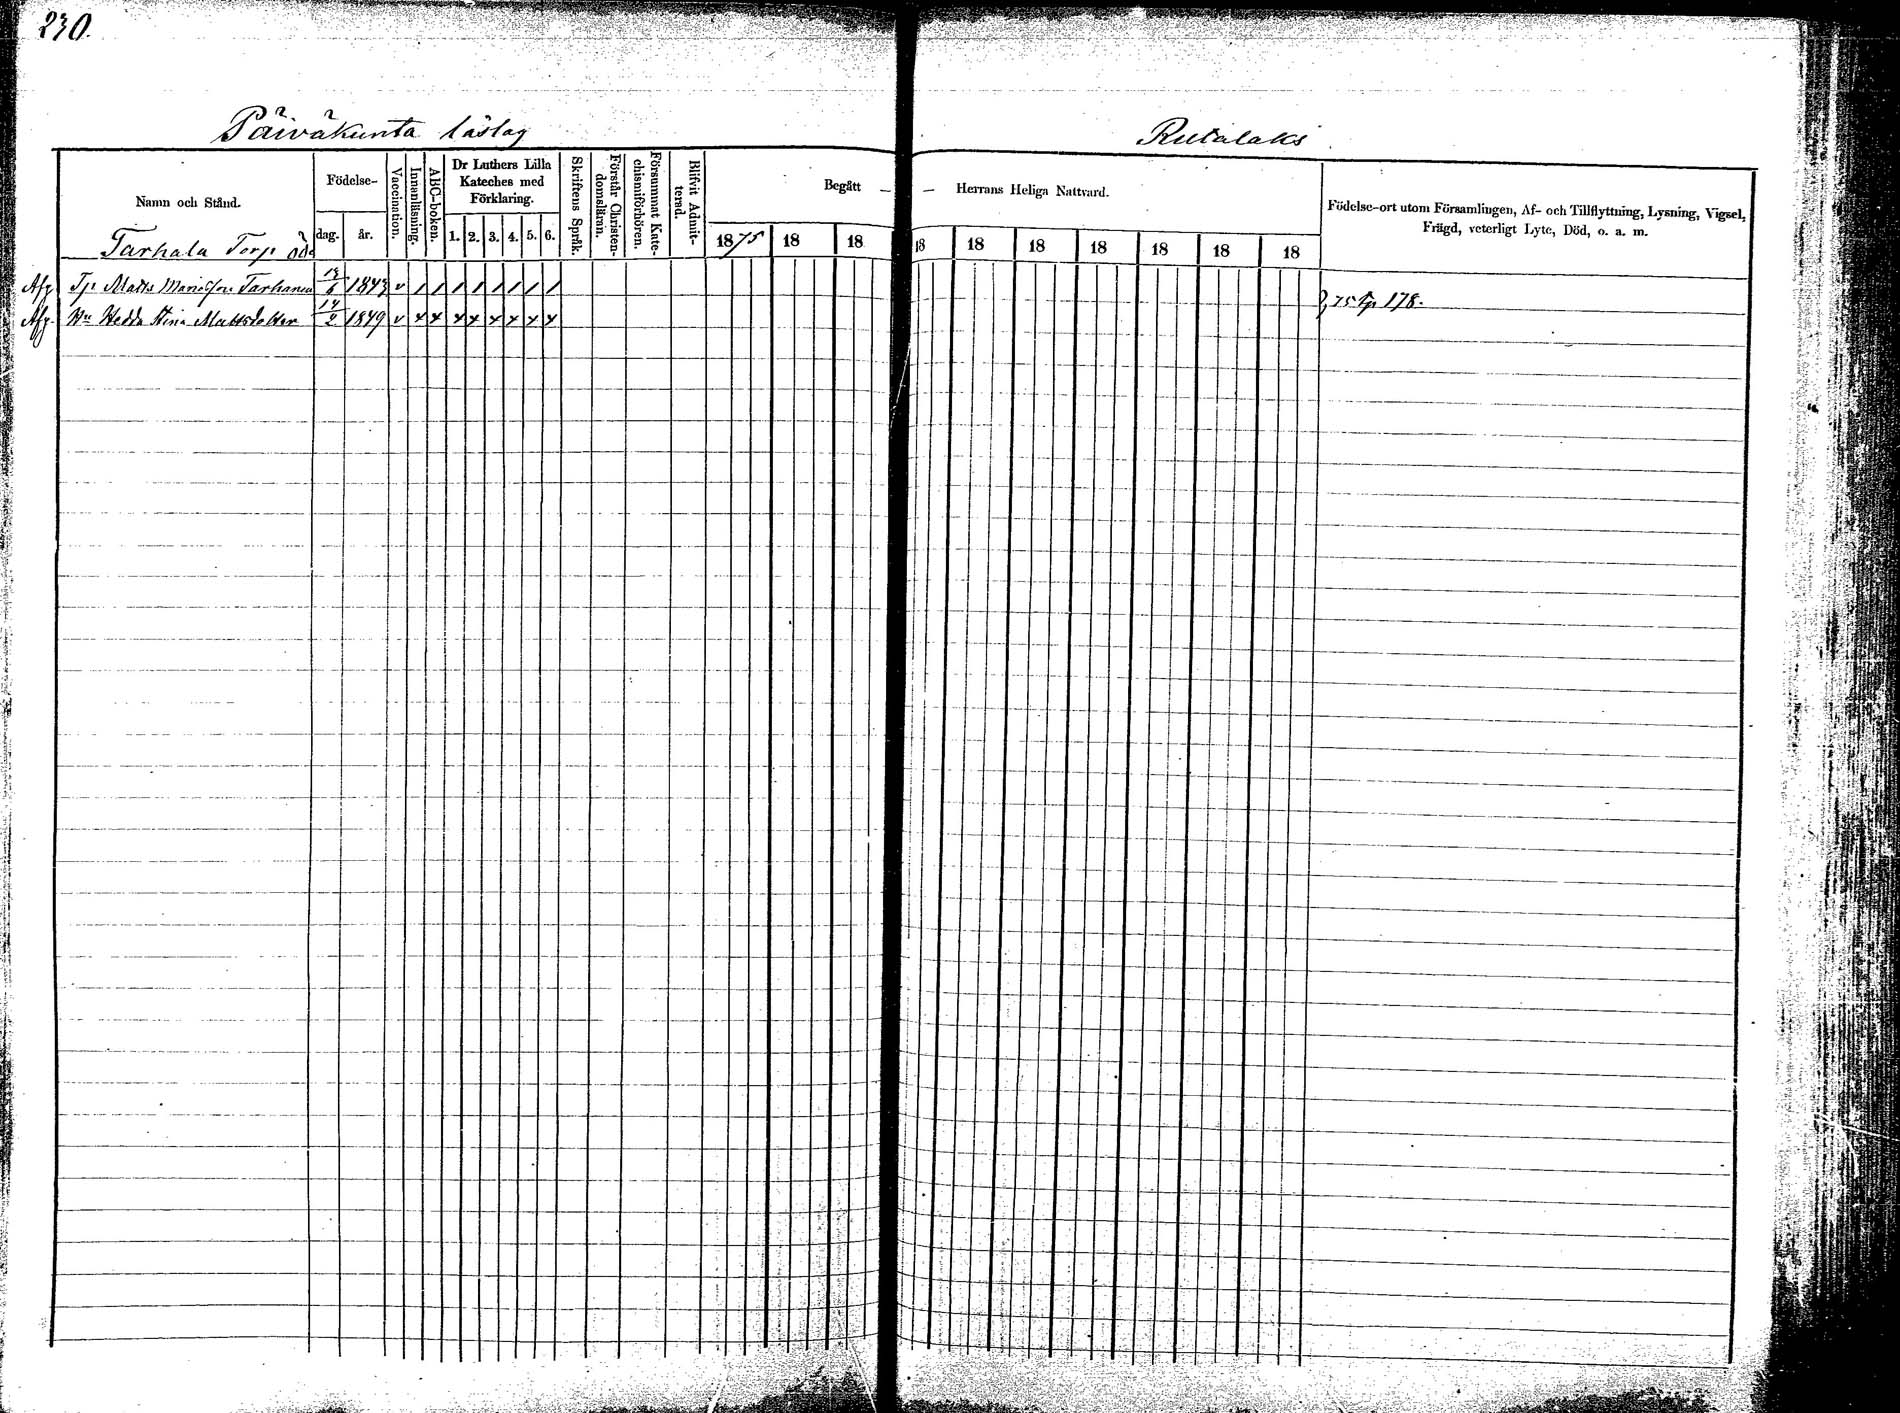 230.
Päiväkunta läslag
Rutalaks
Namn och Stånd.
Födelse-
dag.
år.
Vaccination.
Innanläsning.
ABC-boken.
Dr Luthers Lilla
Kateches med
Förklaring.
1. 2. 3. 4. 5. 6.
Skriftens Språk.
Förstår Christen-
domsläran.
Försummat Kate-
chismiförhören.
Blifvit Admit-
terad.
Begått — — Herrans Heliga Nattvard.
1875 18 18 18 18 18 18 18 18 18
Födelse-ort utom Församlingen, Af- och Tillflyttning, Lysning, Vigsel,
Frägd, veterligt Lyte, Död, o. a. m.
Tarhala Torp öde
Afg. Tp. Matts Tarhanen 1843 v / / / / / / / /
75 Tp 178.
Afg. Hu Hedda Stina Mattsdotter 14/2 1849 v x x x x x x x x